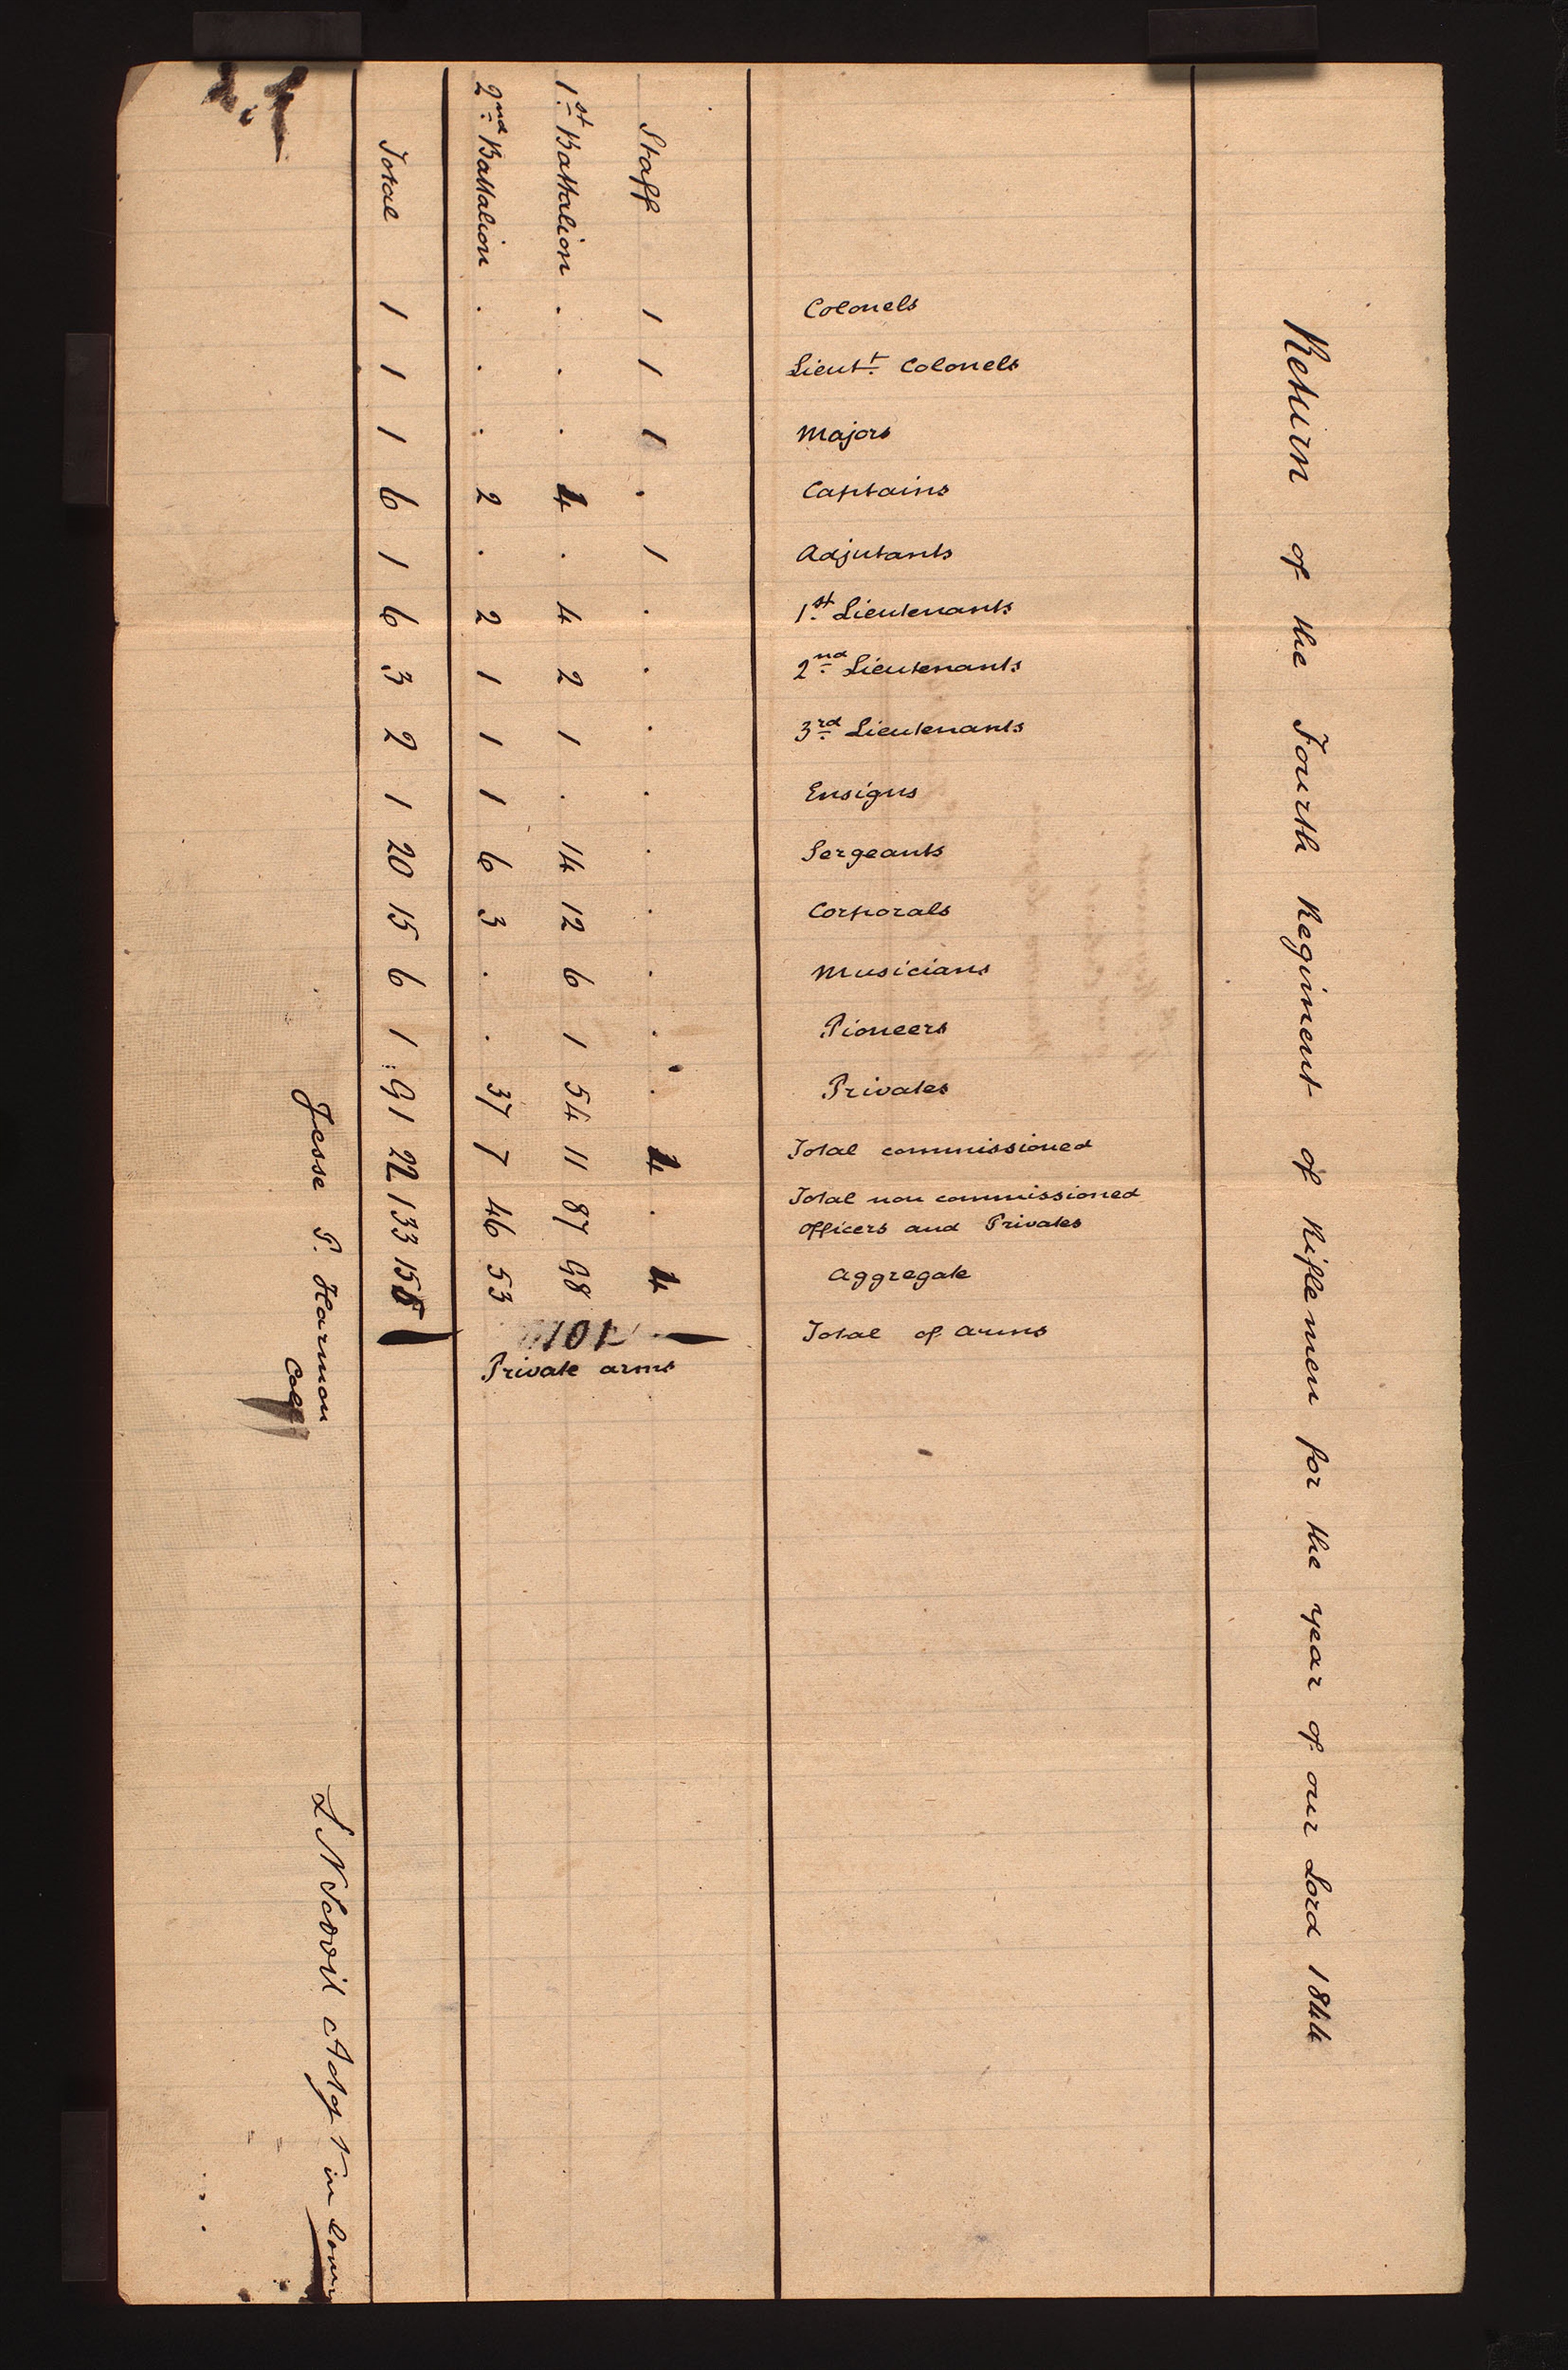 Return of the Fourth Regiment of Riflemen for the year of our Lord 1844
Colonels
Lieut.t Colonels
Majors
Captains
Adjutants
1st. Lieutenants
2nd. Lieutenants
3rd. Lieutenants
Ensigns
Sergeants
Corporals
Musicians
Pioneers
Privates
Total commissioned
Total non commissioned
officers and Privates
Aggregate
Total of arms
Staff 1 1 1 . 1 . . . . . . . . . 4 . 4
1st. Battalion . . . 4 . 4 2 1 . 14 12 6 1 54 11 87 98
2nd. Battalion . . . 2 . 2 1 1 1 6 3 . . 37 7 46 53
101
Private arms
Total 1 1 1 6 1 6 3 2 1 20 15 6 1 91 22 133 155
Jesse P. Harmon
Col
L N Scovil Adgt in